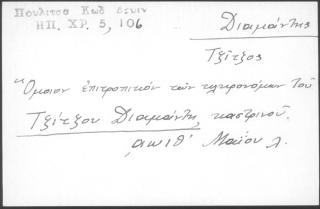 Πουλιτσα Κωδ
ΗΠ. ΧΡ. 5, 106
Διαμάντης
Τζίτζος
"Όμοιον ἐπιτροπικόν τῶν κληρονόμων τοῦ
Τζίτζου Διαμάντη, καστρινοῦ.
͵αωιθ' Μαΐου λ.